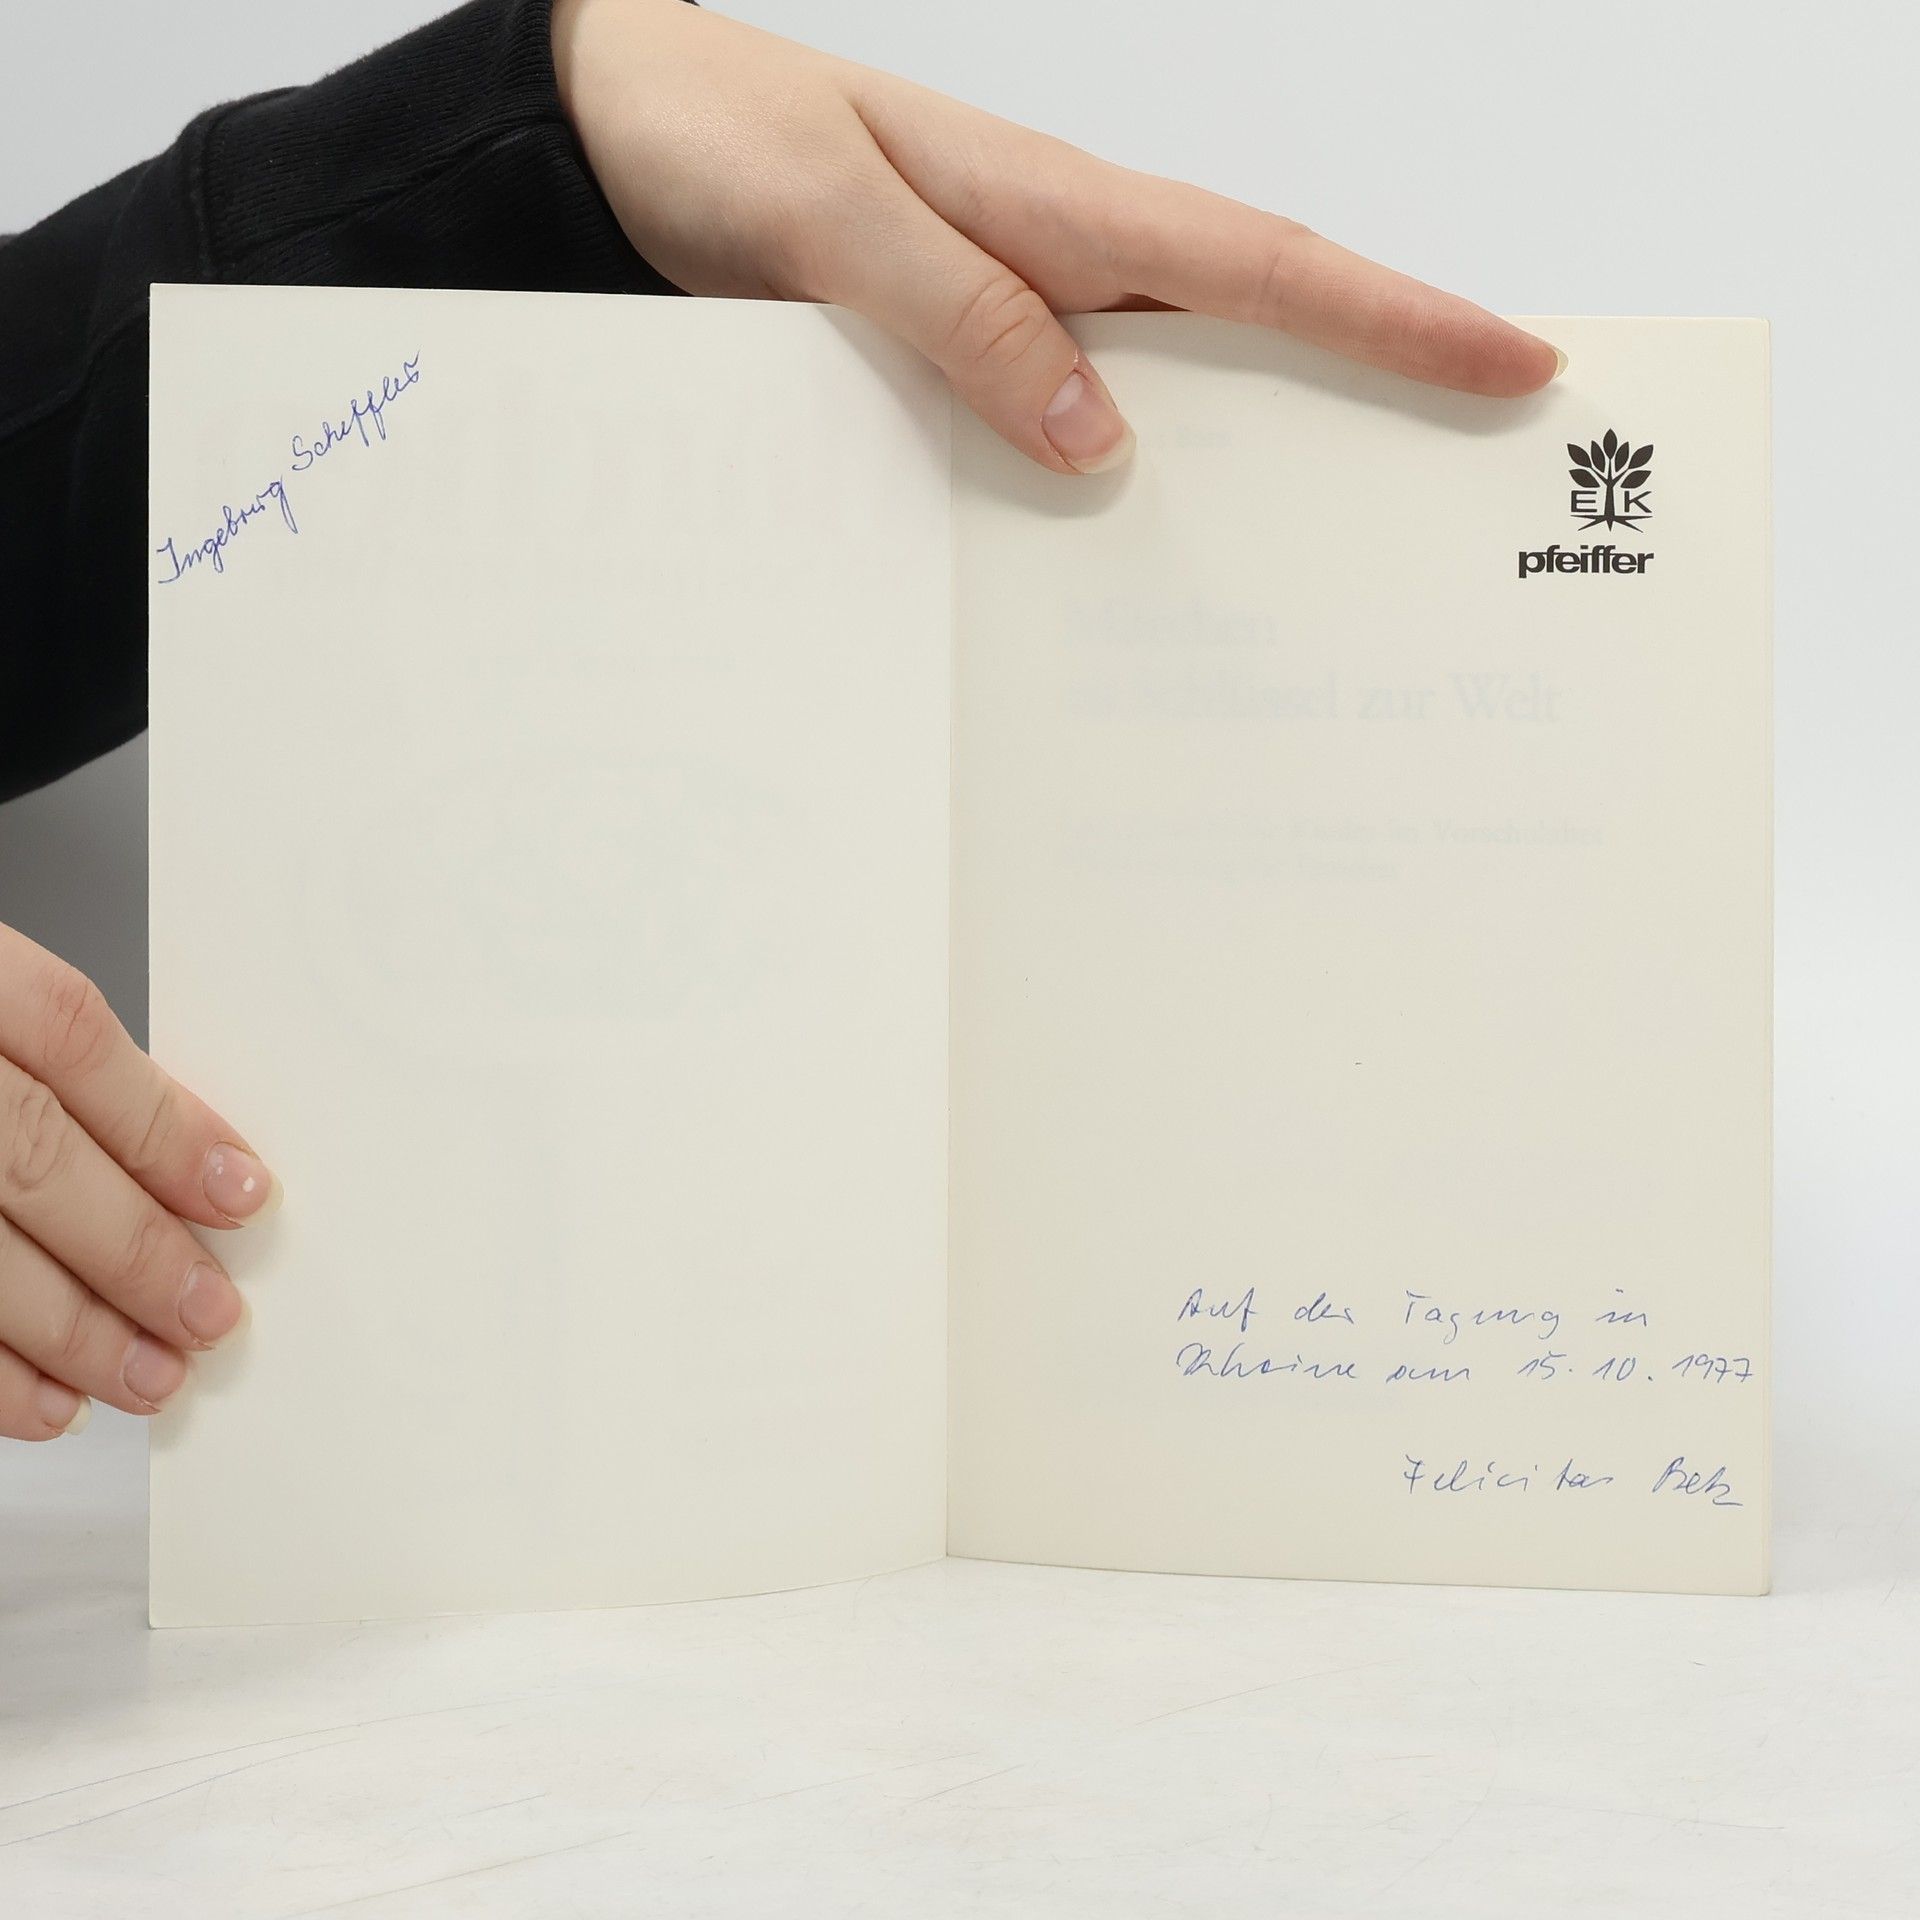 Ingeburg Scheffler
E K
pfeiffer
Märchen
als Schlüssel zur Welt
für Kinder im Vorschulalter
Auf der Tagung in
Rheine am 15.10.1977
Felicitas Betz